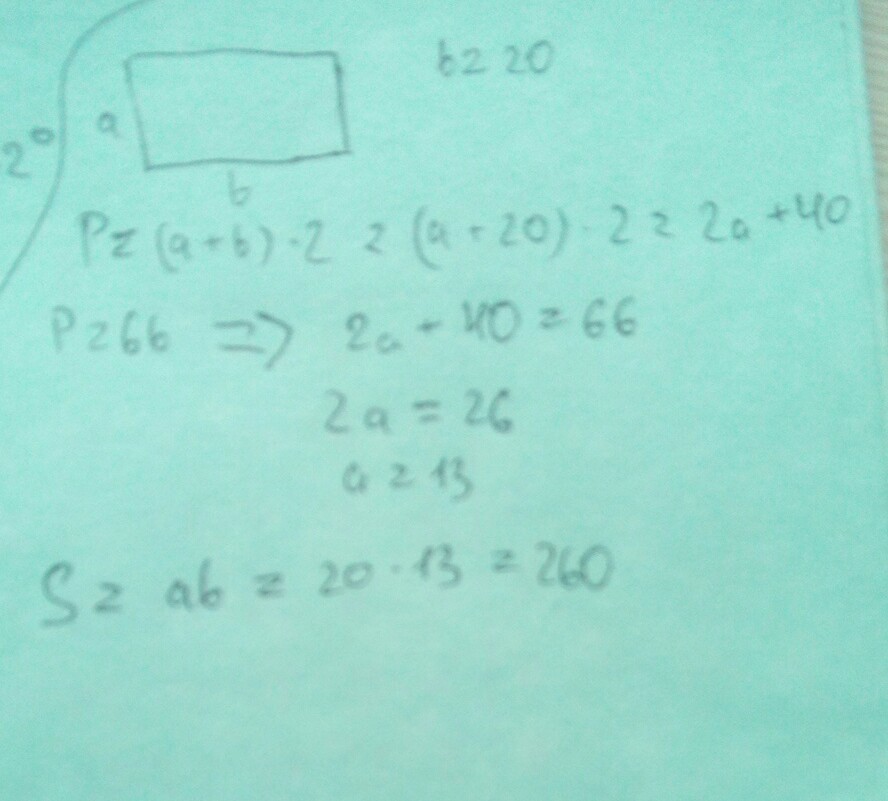 2°
b = 20
a
b
P = (a + b) · 2 = (a + 20) · 2 = 2a + 40
P = 66 ⇒ 2a + 40 = 66
2a = 26
a = 13
S = ab = 20 · 13 = 260